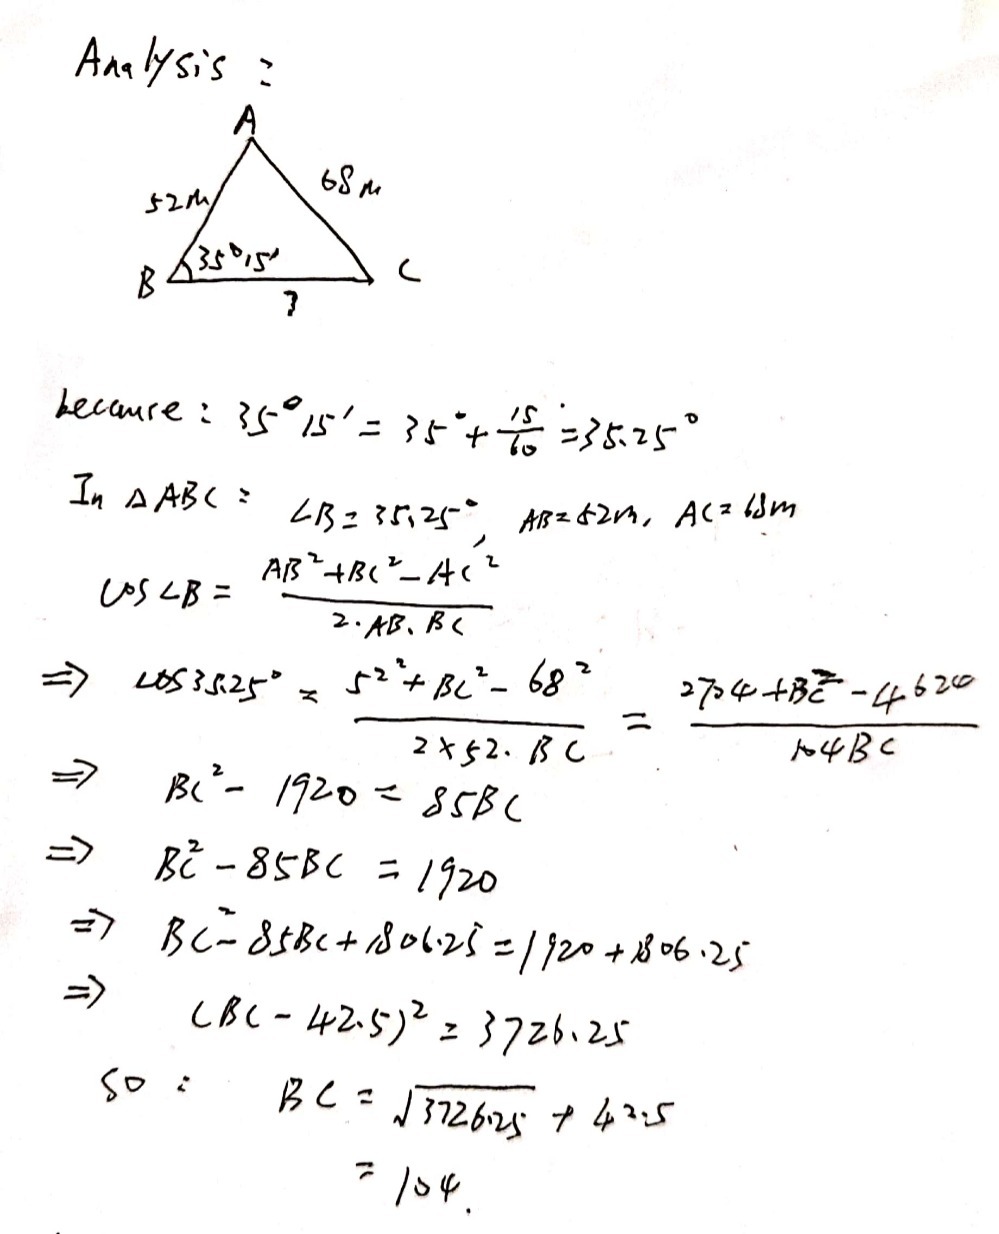 Analysis :
A
52m
68m
35°15'
B
C
?
because : 35°15' = 35° + 15/60 = 35.25°
In △ABC : ∠B = 35.25°, AB = 52m, AC = 68m
cos∠B = (AB² + BC² - AC²) / (2·AB·BC)
=> cos35.25° = (52² + BC² - 68²) / (2×52·BC) = (2704 + BC² - 4624) / (104BC)
=> BC² - 1920 = 85BC
=> BC² - 85BC = 1920
=> BC² - 85BC + 1806.25 = 1920 + 1806.25
=> (BC - 42.5)² = 3726.25
so : BC = √3726.25 + 42.5
= 104.